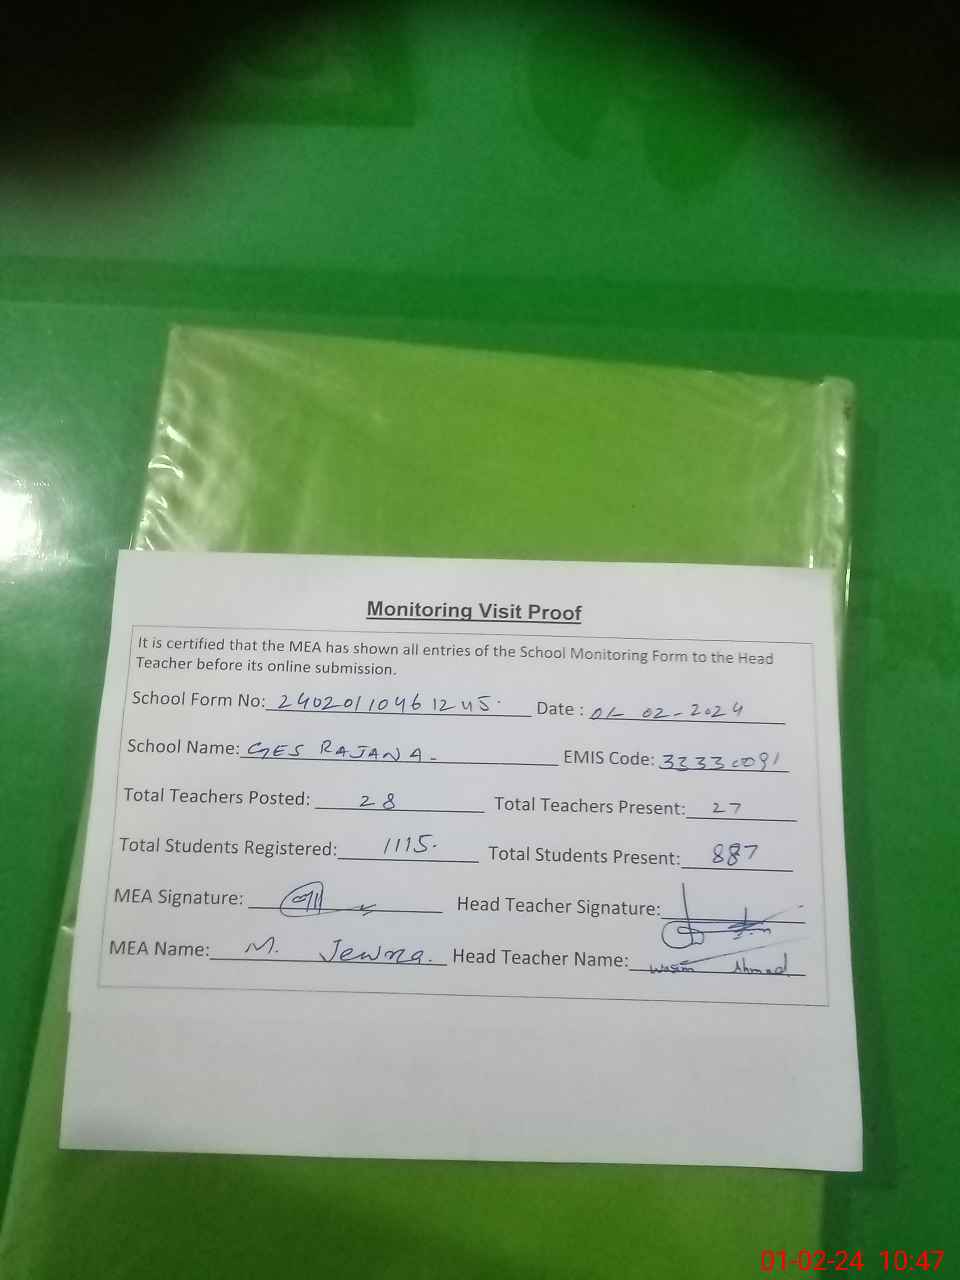 Monitoring Visit Proof
It is certified that the MEA has shown all entries of the School Monitoring Form to the Head
Teacher before its online submission.
School Form No: 24020110461245. Date : 01-02-2024
School Name: GES RAJANA. EMIS Code: 33330091
Total Teachers Posted: 28 Total Teachers Present: 27
Total Students Registered: 1115. Total Students Present: 887
MEA Signature: Head Teacher Signature:
MEA Name: M. Head Teacher Name: Wasim Ahmad
01-02-24 10:47